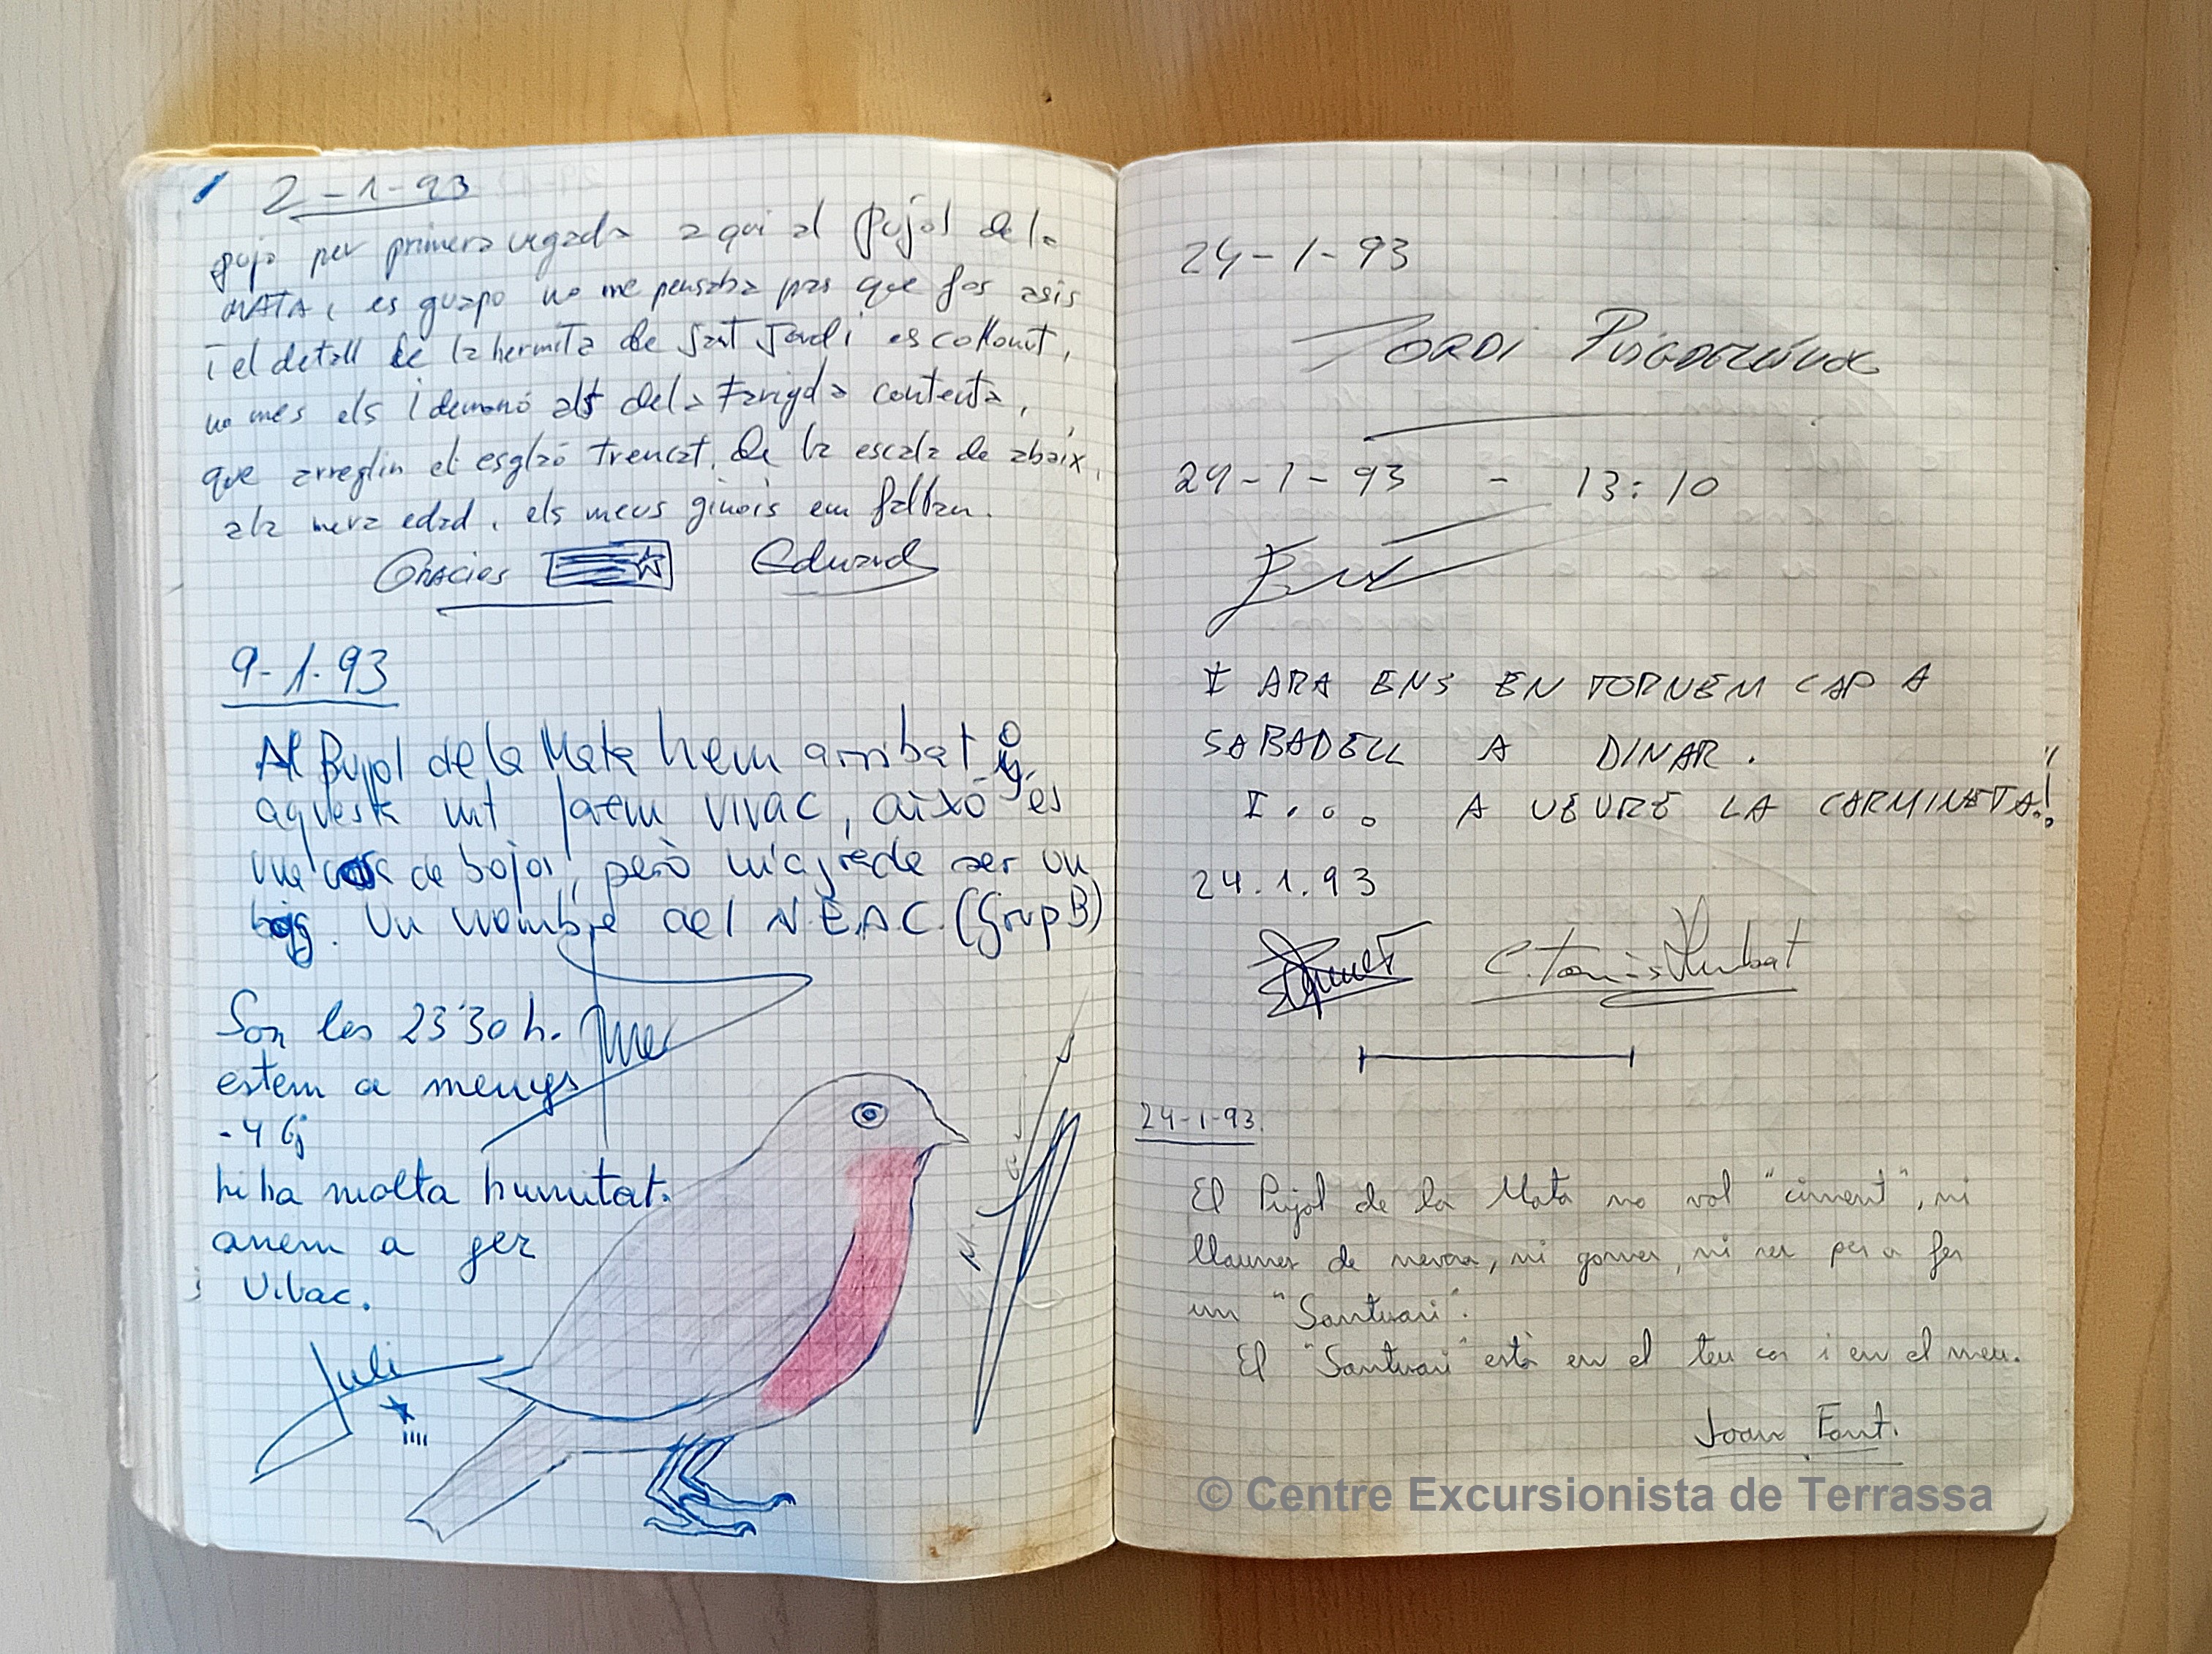 2-1-93
pujo per primera vegada aqui al Pujol de la
MATA, es guapo no me pensaba pas que fos asis
i el detall de la hermita de Sant Jordi es collonut,
no mes els i demano als de la contenta,
que arreglin el esglaó trencat de la escala de abaix,
a la meva edad, els meus ginois em fallan.
Gracies Eduard
9-1-93
Al Pujol de la Mata hem arribat
aquesta nit farem vivac, això és
una de bojos, però m'agrada ser un
boig. Un nombre del N.E.A.C. (Grup B)
Son les 23'30 h.
estem a menys
-4 G
hi ha molta humitat.
anem a fer
Vivac.
Juli
24-1-93
JORDI
24-1-93 - 13:10
I ARA ENS EN TORNEM CAP A
SABADELL A DINAR.
I... A VEURE LA CARMINETA!
24.1.93
24-1-93.
El Pujol de la Mata no vol "ciment", ni
llaunes de nevera, ni gomes, ni res per a fer
un "Santuari".
El "Santuari" està en el teu cor i en el meu.
Joan Font.
© Centre Excursionista de Terrassa